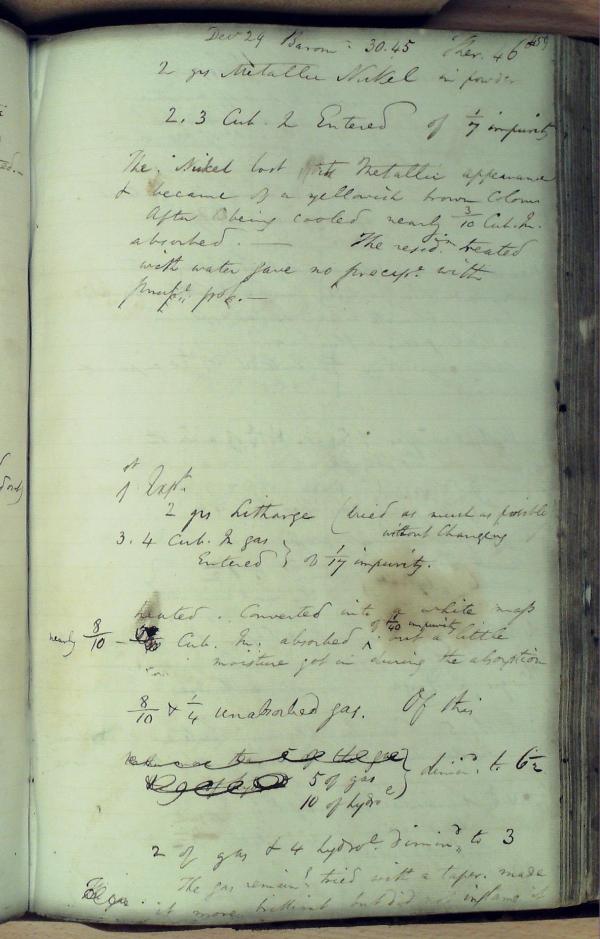 Decr 29 Barom: 30.45 Ther. 46
159
2 grs Metallic Nickel in powder
2.3 Cub. In Entered of 1/7 impurity
The Nickel lost its Metallic appearance
& became of a yellowish brown Colour
After being cooled nearly 3/10 Cub. In.
absorbed. — The resid:m treated
with water gave no precipt. with
1st Expt.
2 grs Litharge (dried as much as possible
without Changing
3.4 Cub. In gas
Entered } of 1/17 impurity.
heated. Converted into a white mass
of 1/40 impurity
nearly 8/10 — Cub. In. absorbed ^ but a little
moisture got in during the absorption
8/10 & 1/4 unabsorbed gas. Of this
5 of gas } dimind. to 6
10 of hydroe
2 of gas & 4 hydroe. dimind. to 3
The gas remaing tried with a taper. made
it more brilliant but did not inflame it